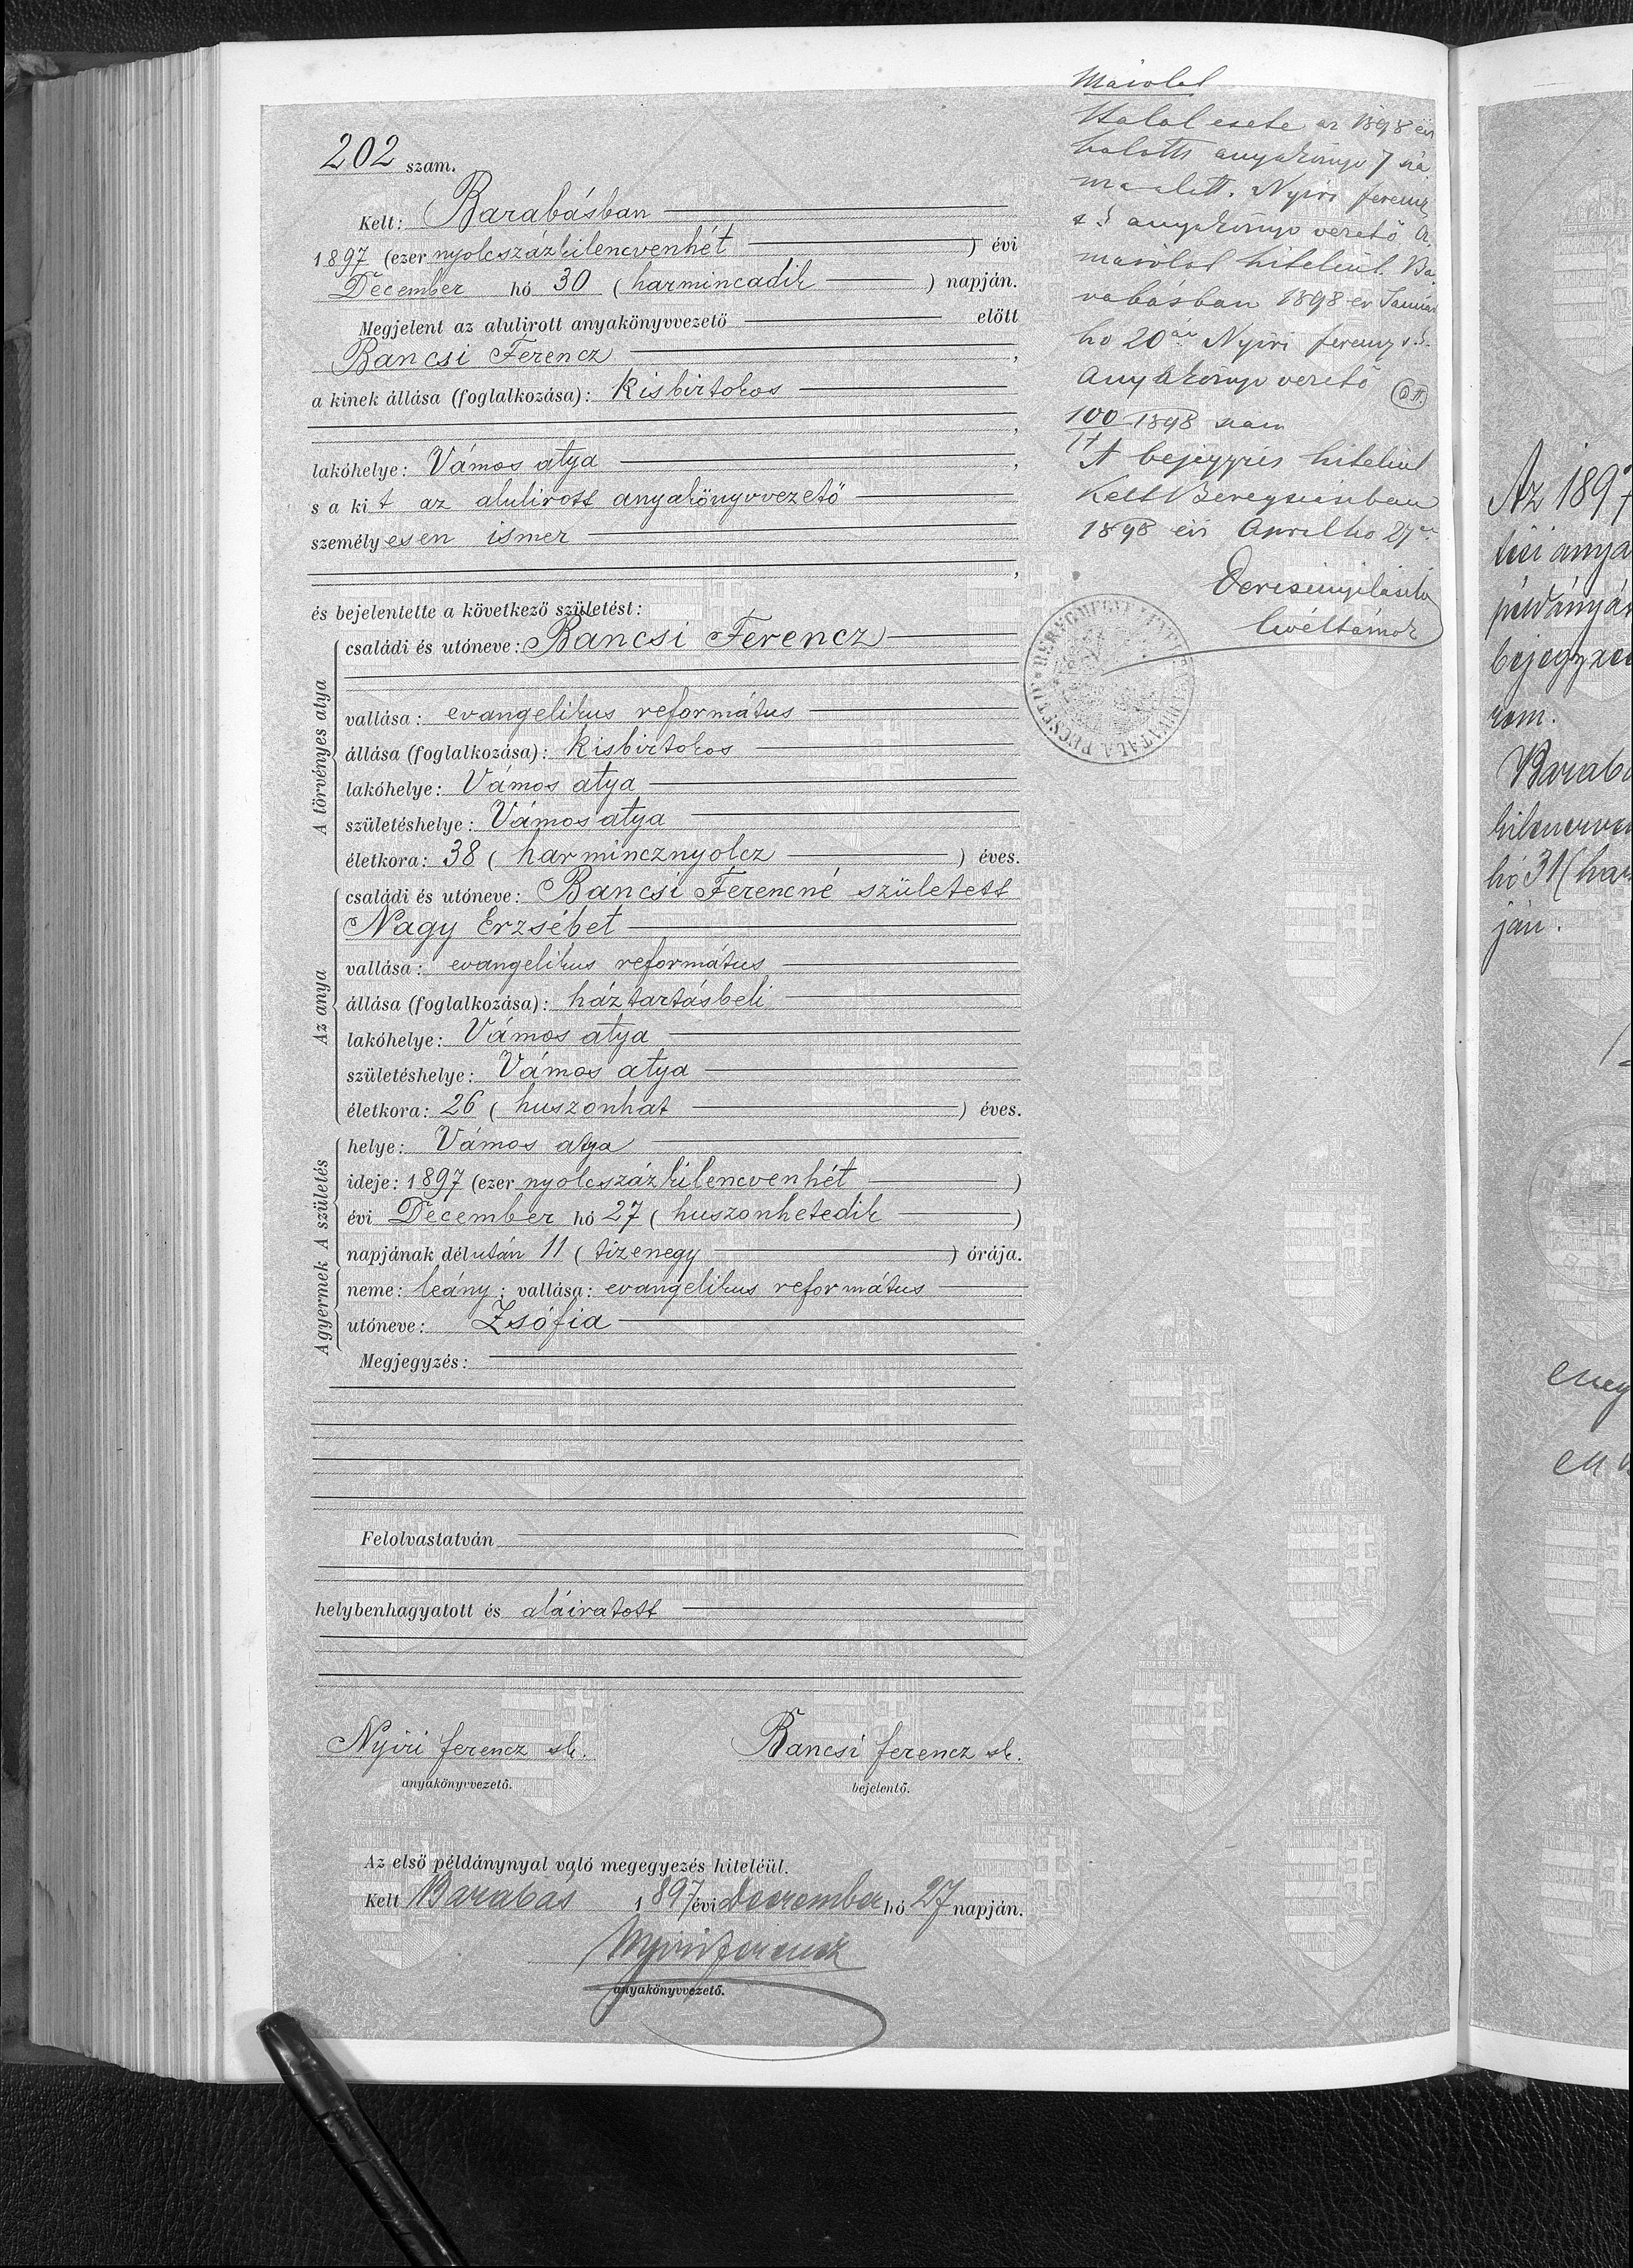 202 szam.
Kelt: Barabásban
1897 (ezer nyolcszázkilencvenhét) évi
December hó 30 (harmincadik) napján.
Megjelent az alulirott anyakönyvvezető előtt
Bancsi Ferencz,
a kinek állása (foglalkozása): kisbirtokos
,
lakóhelye: Vámos atya,
s a kit az alulirott anyakönyvvezető
személyesen ismer
,
és bejelentette a következő születést:
A törvényes atya
családi és utóneve: Bancsi Ferencz
vallása: evangelikus református
állása (foglalkozása): kisbirtokos
lakóhelye: Vámos atya
születéshelye: Vámos atya
életkora: 38 (harmincznyolcz) éves.
Az anya
családi és utóneve: Bancsi Ferencné született
Nagy Erzsébet
vallása: evangelikus református
állása (foglalkozása): háztartásbeli
lakóhelye: Vámos atya
születéshelye: Vámos atya
életkora: 26 (huszonhat) éves.
A születés
helye: Vámos atya
ideje: 1897 (ezer nyolcszázkilencvenhét)
évi December hó 27 (huszonhetedik)
napjának délután 11 (tizenegy) órája.
A gyermek
neme: leány; vallása: evangelikus református
utóneve: Zsófia
Megjegyzés:
Felolvastatván
helybenhagyatott és aláiratott
Nyiri ferencz sk. Bancsi ferencz sk.
anyakönyvvezető. bejelentő.
Az első példánynyal való megegyezés hiteléül.
Kelt Barabás 1897 évi December hó 27 napján.
Nyiri ferencz
anyakönyvvezető.
Másolat
Halal esete az 1898 évi
halotti anyakönyv 7 szá
m alatt. Nyiri ferencz
s.k. anyakönyv vezető A
másolat hiteleül. Ba
rabásban 1898 év Januar
ho 20án Nyiri ferencz s.k.
anyakönyv vezető
100 1898 szám
A bejegyzés hiteleül
Kelt Beregszászban
1898 évi April ho 27én
levéltárnok
Az 1897
téri anya
példányár
bejegyzé
rom.
Barabá
kilencven
hó 31 (har
ján.